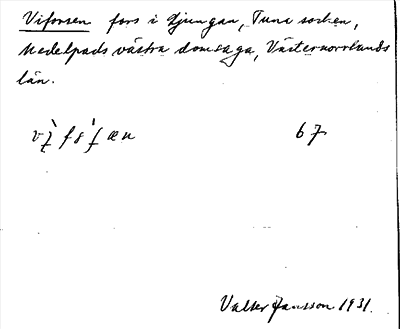 Viforsen fors i Ljungan, Tuna socken,
Medelpads västra domsaga, Västernorrlands
län.
67
Valter Jansson 1931.